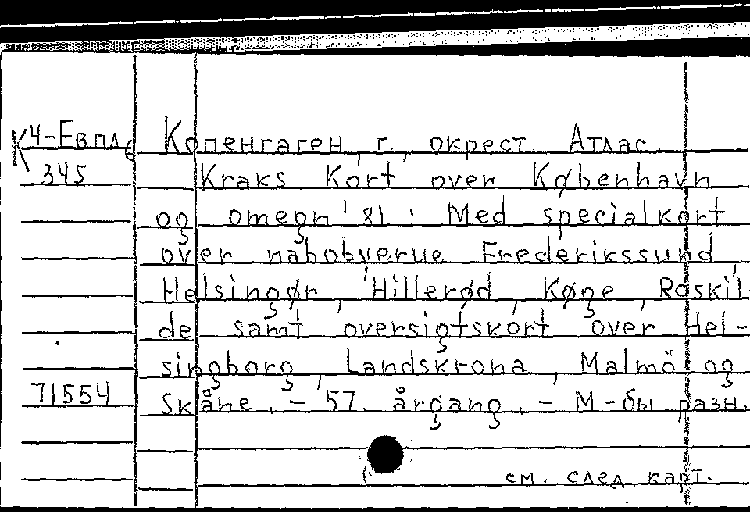 К4-Евпд
345
Копенгаген, г., окрест. Атлас.
Kraks Kort over København
og omegn '81 : Med specialkort
over nabobyerne Frederikssund,
Helsingør, Hillerød, Køge, Roskil-
de samt oversigtskort over Hel-
singborg, Landskrona, Malmö og
71554
Skåne. – 57. årgang. – М-бы разн.
см. след. карт.